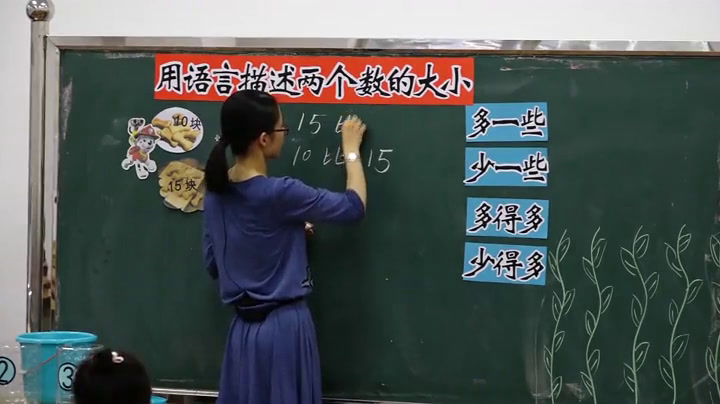 用语言描述两个数的大小
10块
15块
15比
10比15
多一些
少一些
多得多
少得多
②
③